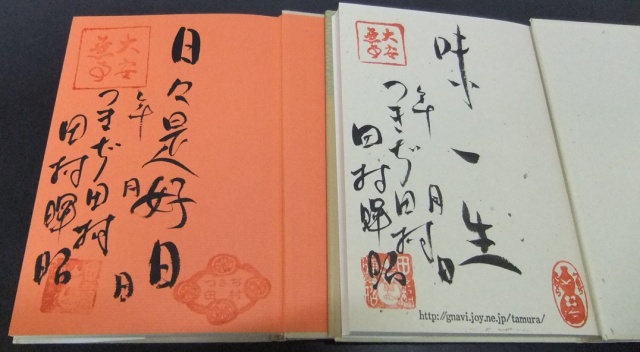 大安
日々是好日
年 月 日
つきぢ田村
田村暉昭
つきぢ
田村
大安
味一生
年 月 日
つきぢ田村
田村暉昭
http://gnavi.joy.ne.jp/tamura/